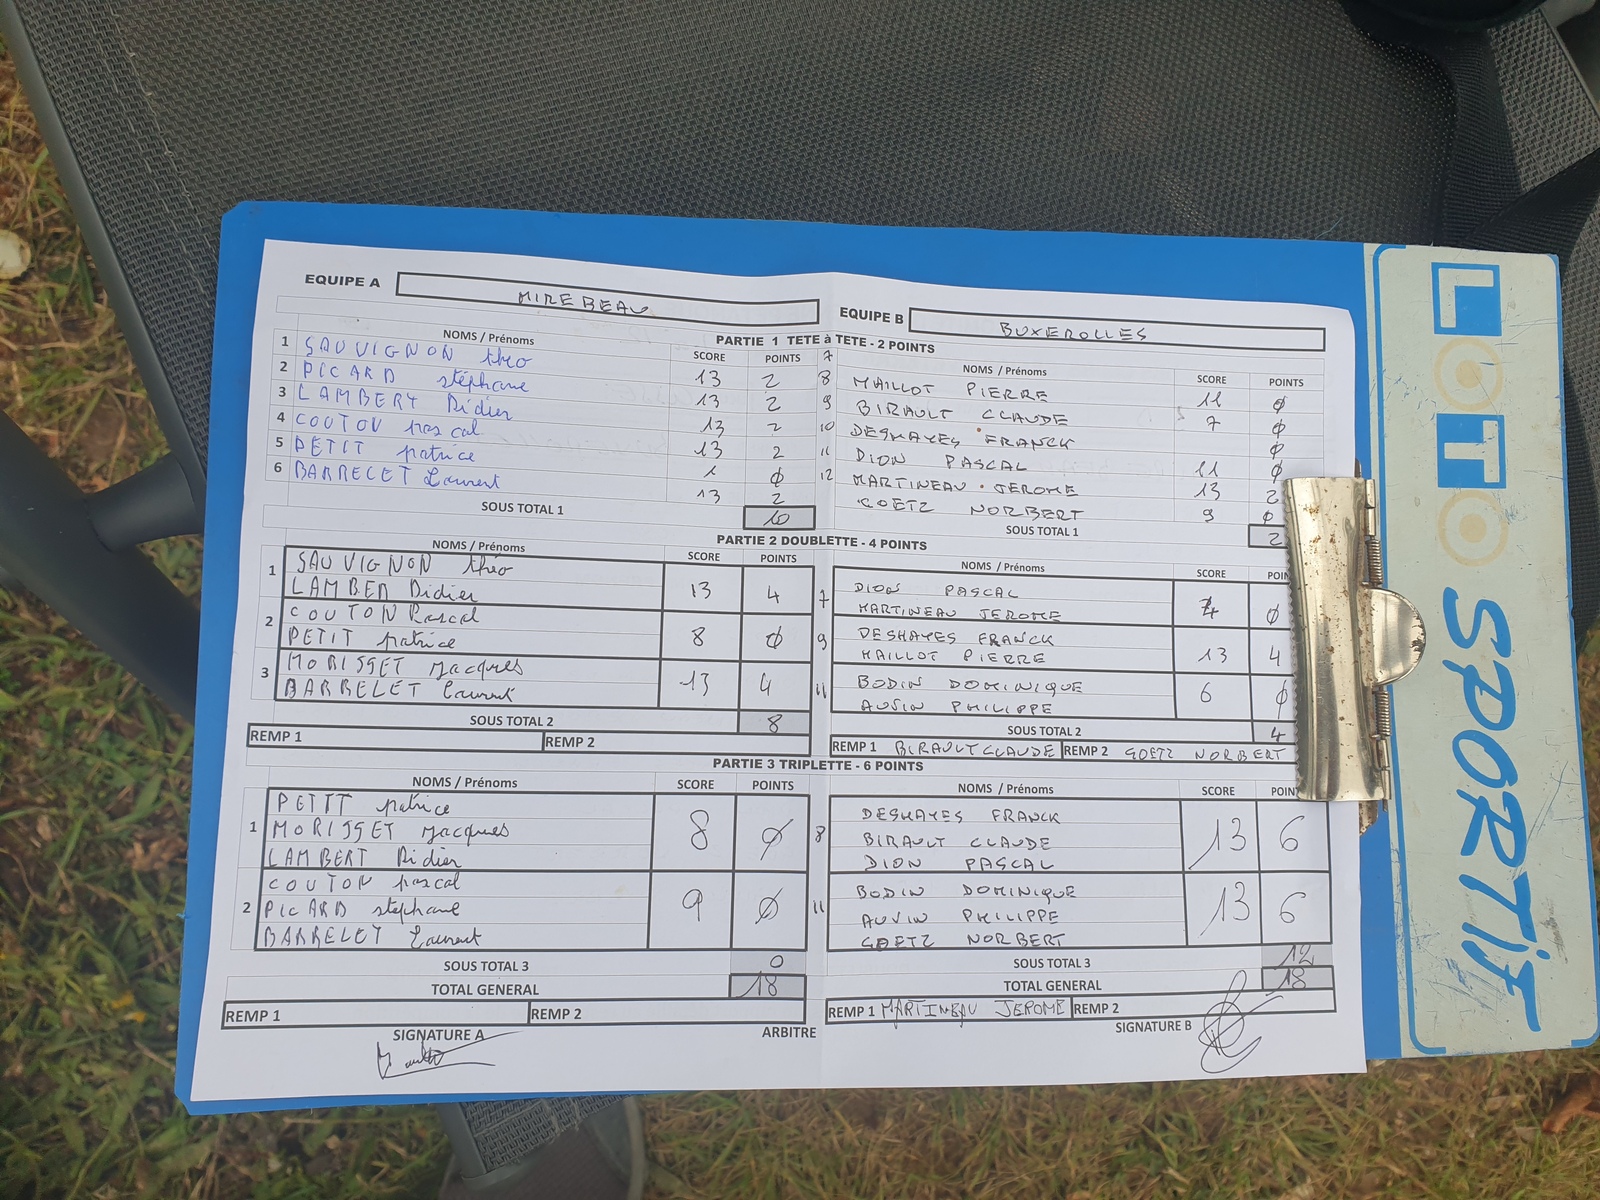 EQUIPE A MIREBEAU EQUIPE B BUXEROLLES
PARTIE 1 TETE à TETE - 2 POINTS
NOMS / Prénoms SCORE POINTS NOMS / Prénoms SCORE POINTS
1 SAUVIGNON théo 13 2 7 MAILLOT PIERRE 11 0
2 PICARD stéphane 13 2 8 BIRAULT CLAUDE 7 0
3 LAMBERT Didier 13 2 9 DESHAYES FRANCK 0
4 COUTON pascal 13 2 10 DION PASCAL 11 0
5 PETIT patrice 1 0 11 MARTINEAU JEROME 13 2
6 BARRELET Laurent 13 2 12 GOETZ NORBERT 9 0
SOUS TOTAL 1 10 SOUS TOTAL 1 2
PARTIE 2 DOUBLETTE - 4 POINTS
NOMS / Prénoms SCORE POINTS NOMS / Prénoms SCORE POINTS
1 SAUVIGNON théo 13 4 7 DION PASCAL 4 0
LAMBER Didier MARTINEAU JEROME
2 COUTON Pascal 8 0 9 DESHAYES FRANCK 13 4
PETIT patrice MAILLOT PIERRE
3 MORISSET Jacques 13 4 11 BODIN DOMINIQUE 6 0
BARRELET Laurent AUSIN PHILIPPE
SOUS TOTAL 2 8 SOUS TOTAL 2 4
REMP 1 REMP 2 REMP 1 BIRAULT CLAUDE REMP 2 GOETZ NORBERT
PARTIE 3 TRIPLETTE - 6 POINTS
NOMS / Prénoms SCORE POINTS NOMS / Prénoms SCORE POINTS
1 PETIT patrice 8 0 8 DESHAYES FRANCK 13 6
MORISSET Jacques BIRAULT CLAUDE
LAMBERT Didier DION PASCAL
2 COUTON pascal 9 0 11 BODIN DOMINIQUE 13 6
PICARD stéphane AUSIN PHILIPPE
BARRELET Laurent GOETZ NORBERT
SOUS TOTAL 3 0 SOUS TOTAL 3 12
TOTAL GENERAL 18 TOTAL GENERAL 18
REMP 1 REMP 2 REMP 1 MARTINEAU JEROME REMP 2
SIGNATURE A ARBITRE SIGNATURE B
LOTO SPORTIF